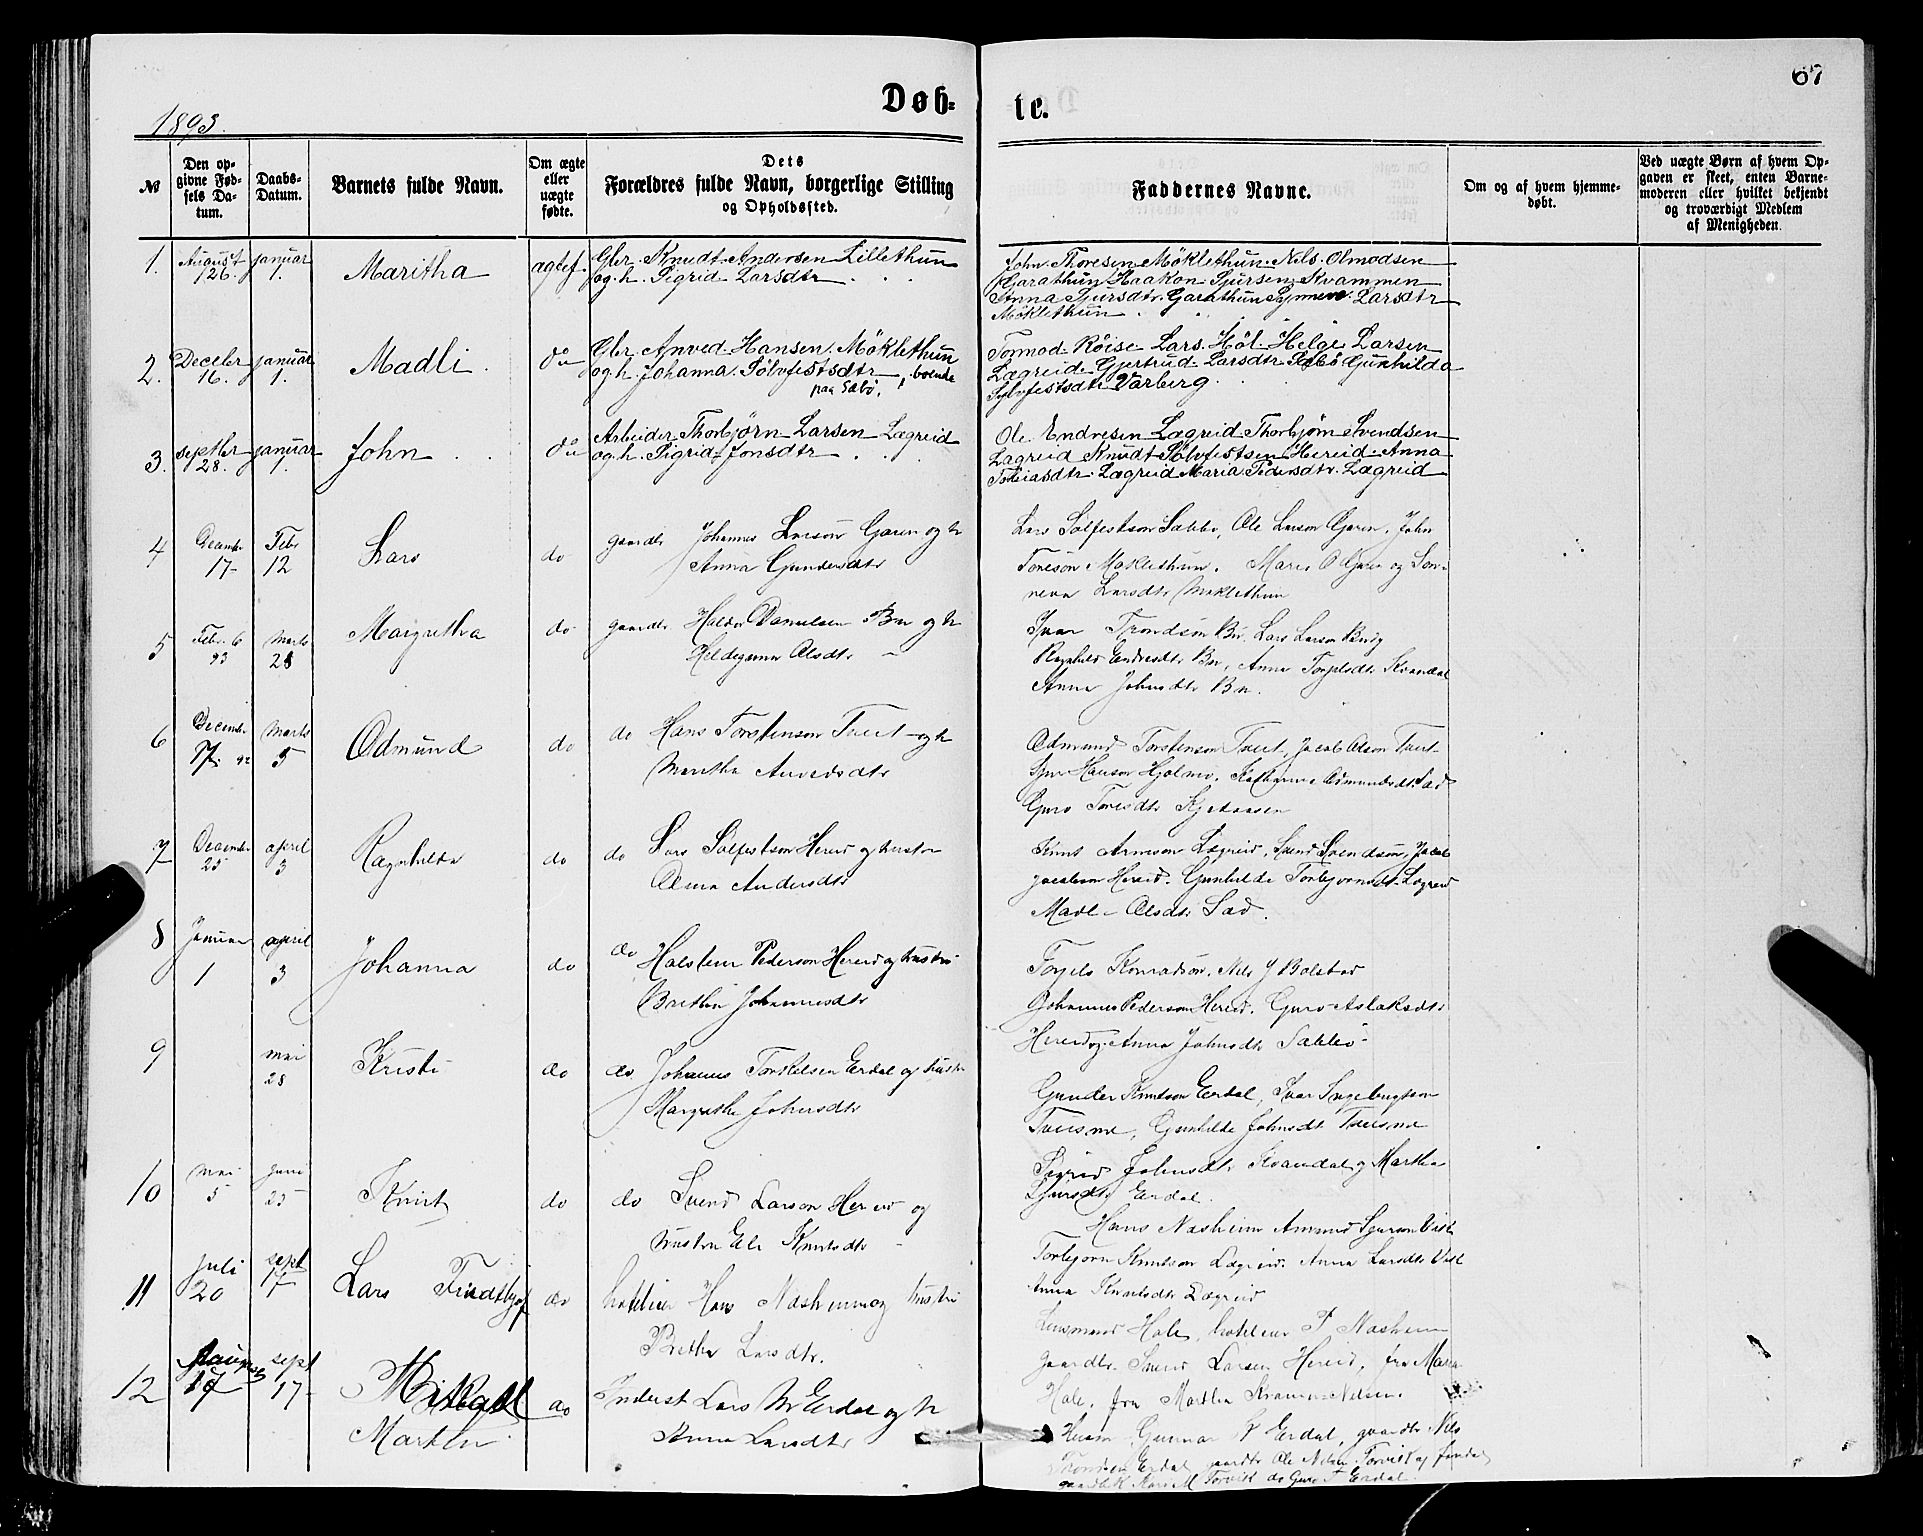 67
Døb-
te.
1893.
№
Den op-
givne Fød-
sels Da-
tum.
Daabs-
Datum.
Barnets fulde Navn.
Om ægte
eller
uægte
fødte.
Dets
Forældres fulde Navn, borgerlige Stilling
og Opholdssted.
Faddernes Navne.
Om og af hvem hjemme-
døbt.
Ved uægte Børn af hvem Op-
gaven er skeet, enten Barne-
moderen eller hvilket bekjendt
og troværdigt Medlem
af Menigheden.
1. August 26. januar 1. Maritha ægtef. Gbr. Knudt Andersen Lillethun
og h. Sigrid Larsdtr
John Thoresen Möklethun. Nils Olmodsen
Garathun Haakon Sjursen Kvammen
Anna Sjursdtr. Garathun Synneve Larsdtr
Möklethun
2. Decebr 16. januar 1. Madli do Gbr. Anved Hansen Möklethun
og h. Johanna Sölvfestsdtr, boende
paa Sæbö.
Tormod Röise Lars Höl. Helge Larsen
Lægreid Gjertrud Larsdtr Sæbö Gunhilda
Sylvfestsdtr Varberg
3. septbr 28. januar 1. John do Arbeider Thorbjörn Larsen Lægreid
og h. Sigrid Jonsdtr
Ole Endresen Lægreid Thorbjörn Svendsen
Lægreid Knudt Sölvfestsen Hereid. Anna
Lægreid Maria Pedersdtr. Lægreid
4 Decembr 17 Febr 12 Lars do gaardbr Johannes Larson Garen og h
Anna Gundersdtr
Lars Solfestson Sæbbø, Ole Larson Garen, John
Toreson Moklethun. Mari O Garen og Son-
neva Larsdtr Moklethun
5 Febr. 6 93 Marts 28 Margretha do gaardbr Haldor Danielsen Bu og h
Hildegunna Olsdtr
Ivar Trondson Bu, Lars Larson
Ragnhild Endresdtr Bu, Anna Torjelsdtr Kvandal
Anna Johnsdtr Bu.
6 Decembr 17. 92 Marts 5 Odmund do do Hans Torstenson Tveit og h
Maritha Anvedsdtr
Odmund Torstenson Tveit, Jacob Olson Tveit
Hanson Hjolmo, Katharina Odmundsdtr Sæd
Guro Toresdtr
7 December 25 april 3 Ragnhilda do do Lars Solfestson Hereid og hustru
Andersdtr
Knut Arneson Lægreid, Svend Svendson, Jacob
Jacobson Hereid. Gunhilde Torbjornsdtr Lægreid
Madli Olsdtr Sæd.
8 Januar 1 april 3 Johanna do do Halstein Pederson Hereid og hustru
Britha Johannesdtr
Torjels Konradson, Nils J Bolstad
Johannes Pederson Hereid. Guro Aslaksdtr
Hereid og Anna Johnsdtr Sæbbø
9 mai 28 Kristi do do Johannes Torkelsen Erdal og hustru
Margretha Johnsdtr
Gunder Knutson Erdal, Ivar Ingebrigtson
Tveisme, Gunhilde Johnsdtr Tveisme
Sigrid Johnsdtr Kvandal og Martha
Sjursdtr Erdal.
10 mai 5 juni 25 Knut do do Svend Larson Hereid og
hustru Eli Knutsdtr
Hans Næsheim Amund Sjurson
Torbjorn Knutson Lægreid. Anna Larsdtr
Anna Knutsdtr Lægreid
11 Juli 20 sept 17 Lars Fridthjof do hotelier Hans Næsheim og hustru
Britha Larsdtr.
Lensmand Hole, hotelier P Næsheim
gaardbr. Svend Larsen Hereid, fru Maria
Hole, fru Martha Nelsen.
12 August 17 sept 17 Mikael
Martin do Inderst Lars M Erdal og h
Anna Larsdtr
Gunnar K Erdal, gaardbr Nils
Erdal gaardbr Ole Nilsen Torvik og
Kari M Torvik do Guro T Erdal.